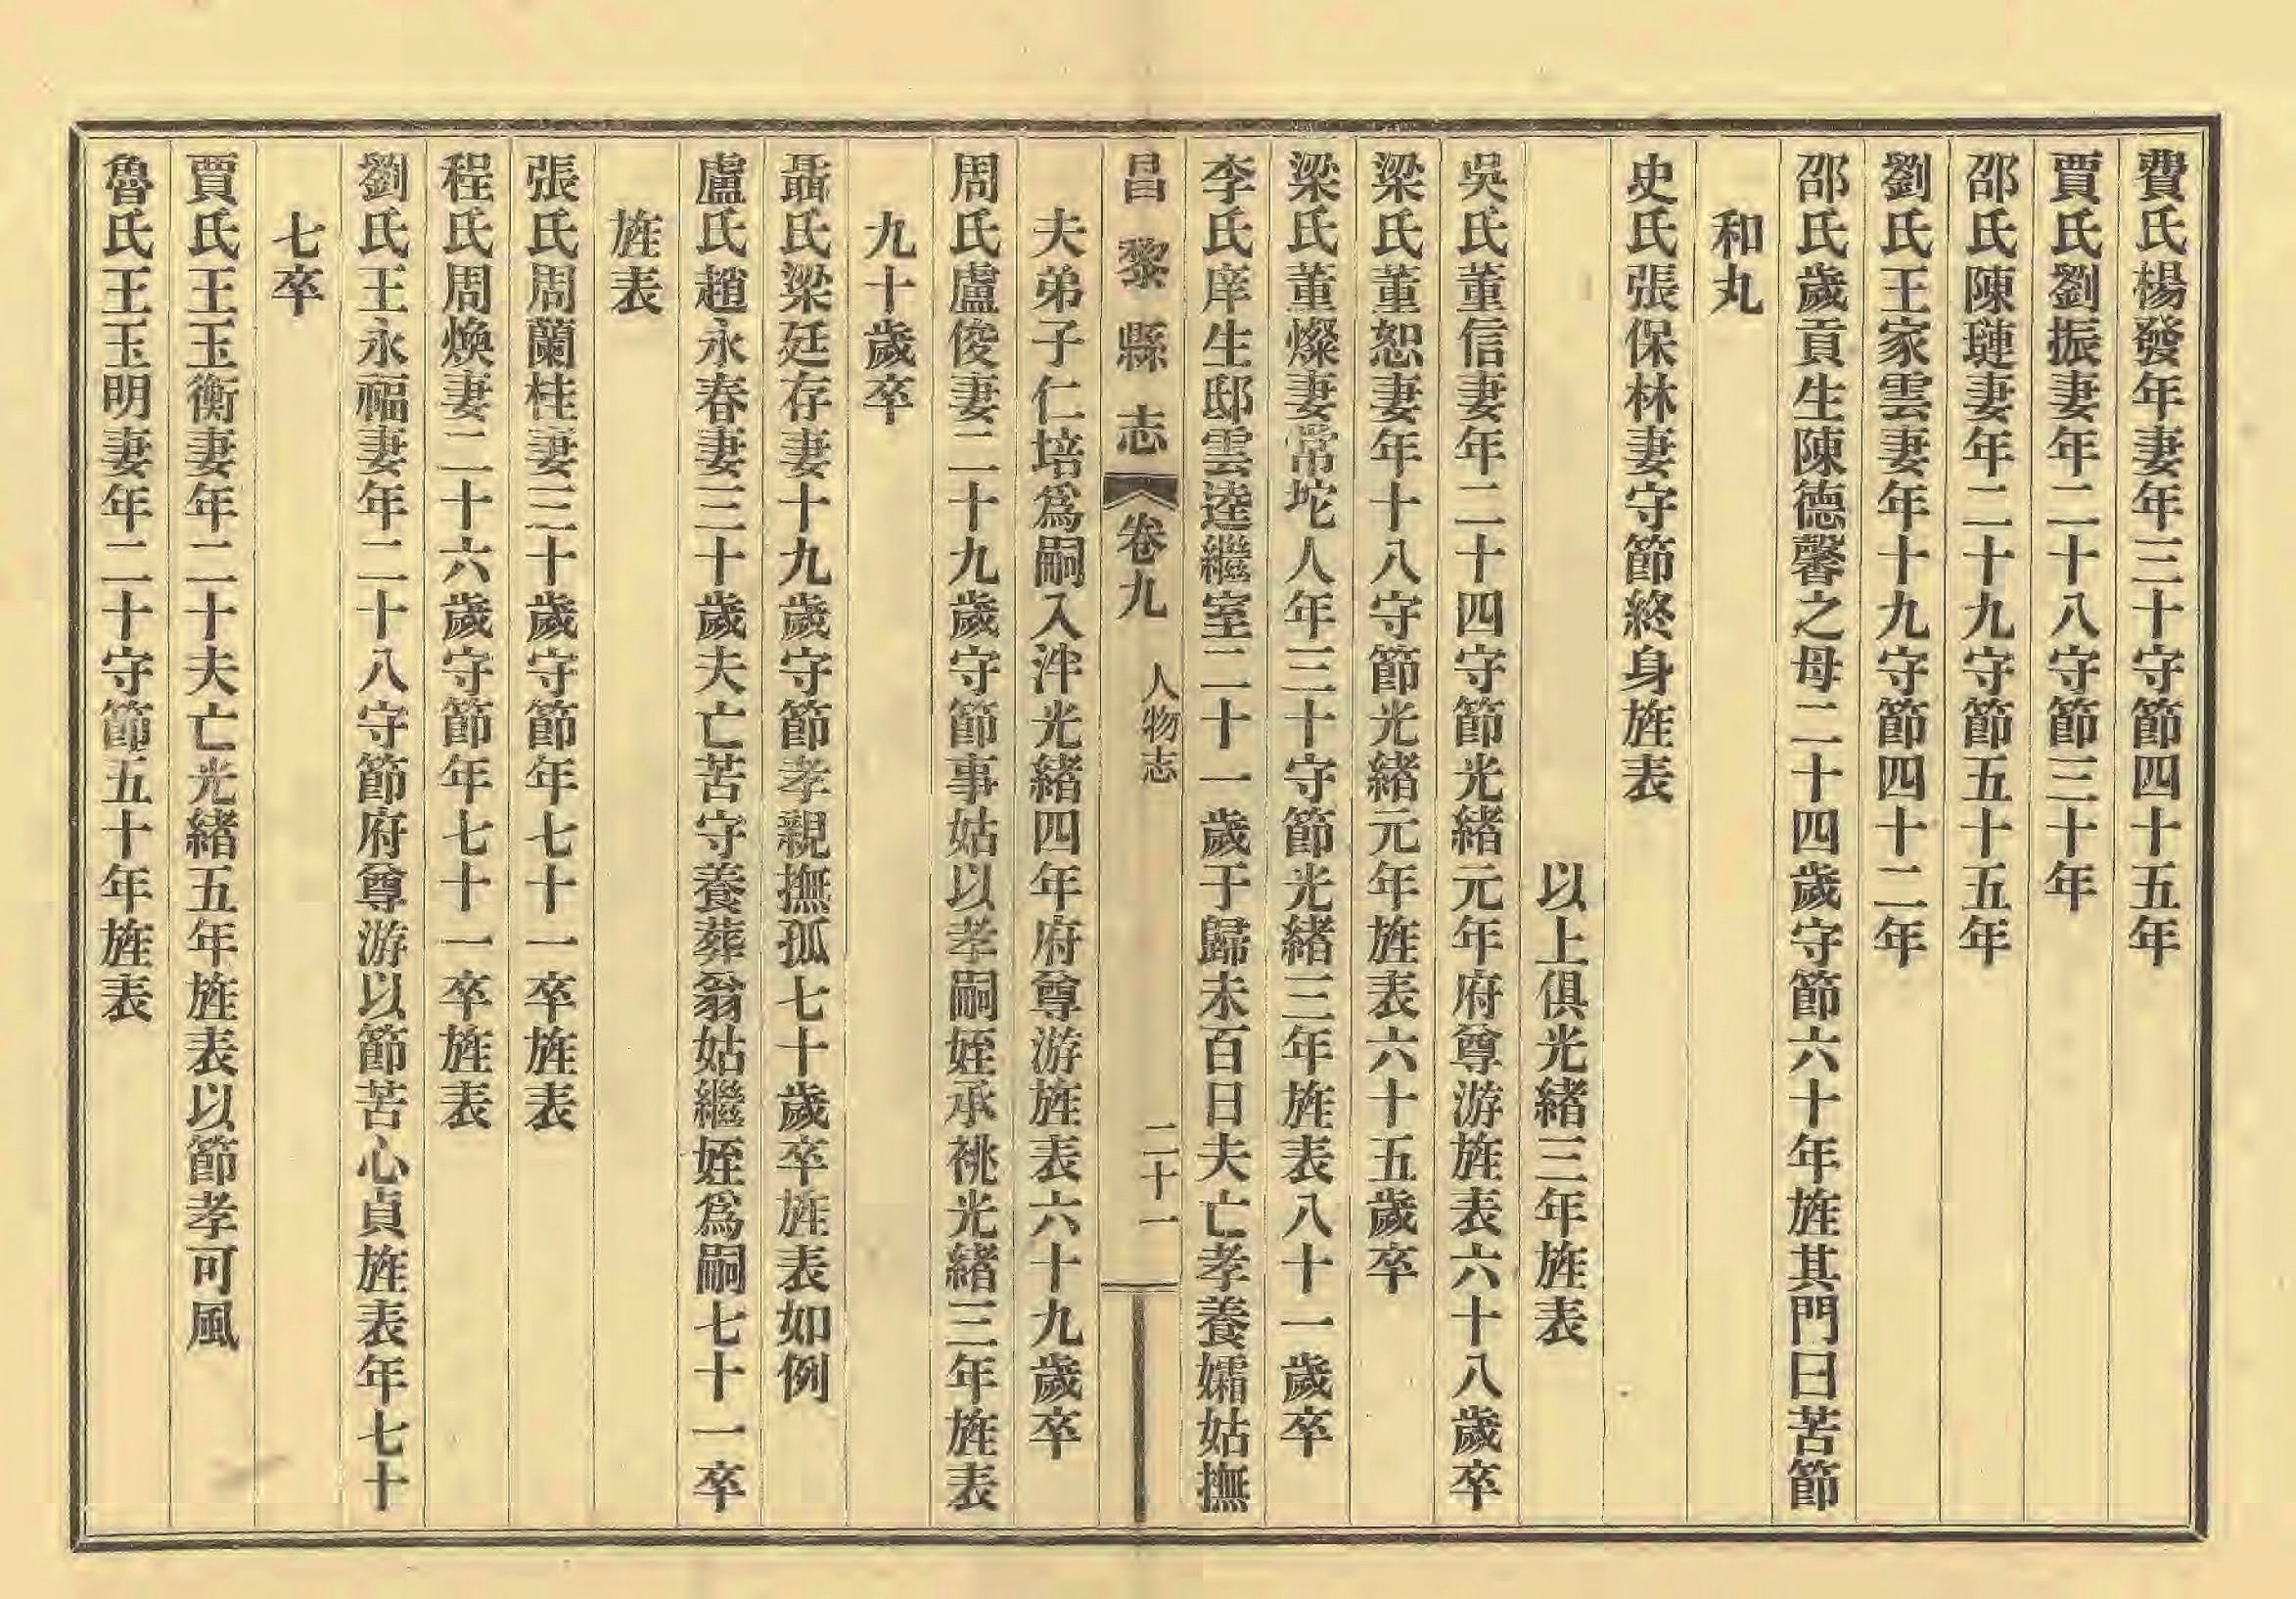 費氏楊發年妻年三十守節四十五年
賈氏劉振妻年二十八守節三十年
邵氏陳璉妻年二十九守節五十五年
劉氏王家雲妻年十九守節四十二年
邵氏歲貢生陳德馨之母二十四歲守節六十年旌其門曰苦節
和丸
史氏張保林妻守節終身旌表
以上俱光緒三年旌表
吳氏董信妻年二十四守節光緒元年府尊游旌表六十八歲卒
梁氏董恕妻年十八守節光緒元年旌表六十五歲卒
梁氏董燦妻常坨人年三十守節光緒三年旌表八十一歲卒
李氏庠生邸雲逵繼室二十一歲于歸未百日夫亡孝養孀姑撫
昌黎縣志 卷九 人物志 二十一
夫弟子仁培爲嗣入泮光緒四年府尊游旌表六十九歲卒
周氏盧俊妻二十九歲守節事姑以孝嗣姪承祧光緒三年旌表
九十歲卒
聶氏梁廷存妻十九歲守節孝親撫孤七十歲卒旌表如例
盧氏趙永春妻三十歲夫亡苦守養葬翁姑繼姪爲嗣七十一卒
旌表
張氏周蘭桂妻三十歲守節年七十一卒旌表
程氏周煥妻二十六歲守節年七十一卒旌表
劉氏王永福妻年二十八守節府尊游以節苦心貞旌表年七十
七卒
賈氏王玉衡妻年二十夫亡光緒五年旌表以節孝可風
魯氏王玉明妻年二十守節五十年旌表